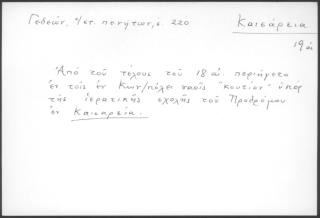 Γεδεών, π/στ. πενήτων, σ. 220
Καισάρεια
19 αἰ
Ἀπό τοῦ τέλους τοῦ 18 αἰ. περιήγετο
ἐν τοῖς ἐν Κων/πόλει ναοῖς "κουτίον" ὑπέρ
τῆς ἱερατικῆς σχολῆς τοῦ Προδρόμου
ἐν Καισαρείᾳ.